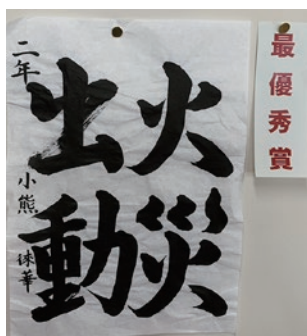 最優秀賞
火災
出動
二年 小熊 徠華